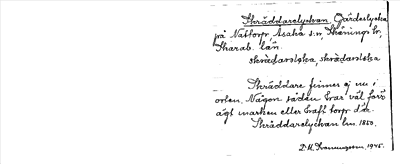 Skräddarelyckan Gärdeslycka
på Nattorp, Asaka s:n, Skånings h.,
Skarab. län.
skrädarolska, skrädarolska
Skräddare finnes ej nu i
orten. Någon sådan har väl förr
ägt marken eller haft torp där.
Skräddarelyckan lm. 1850.
1945.